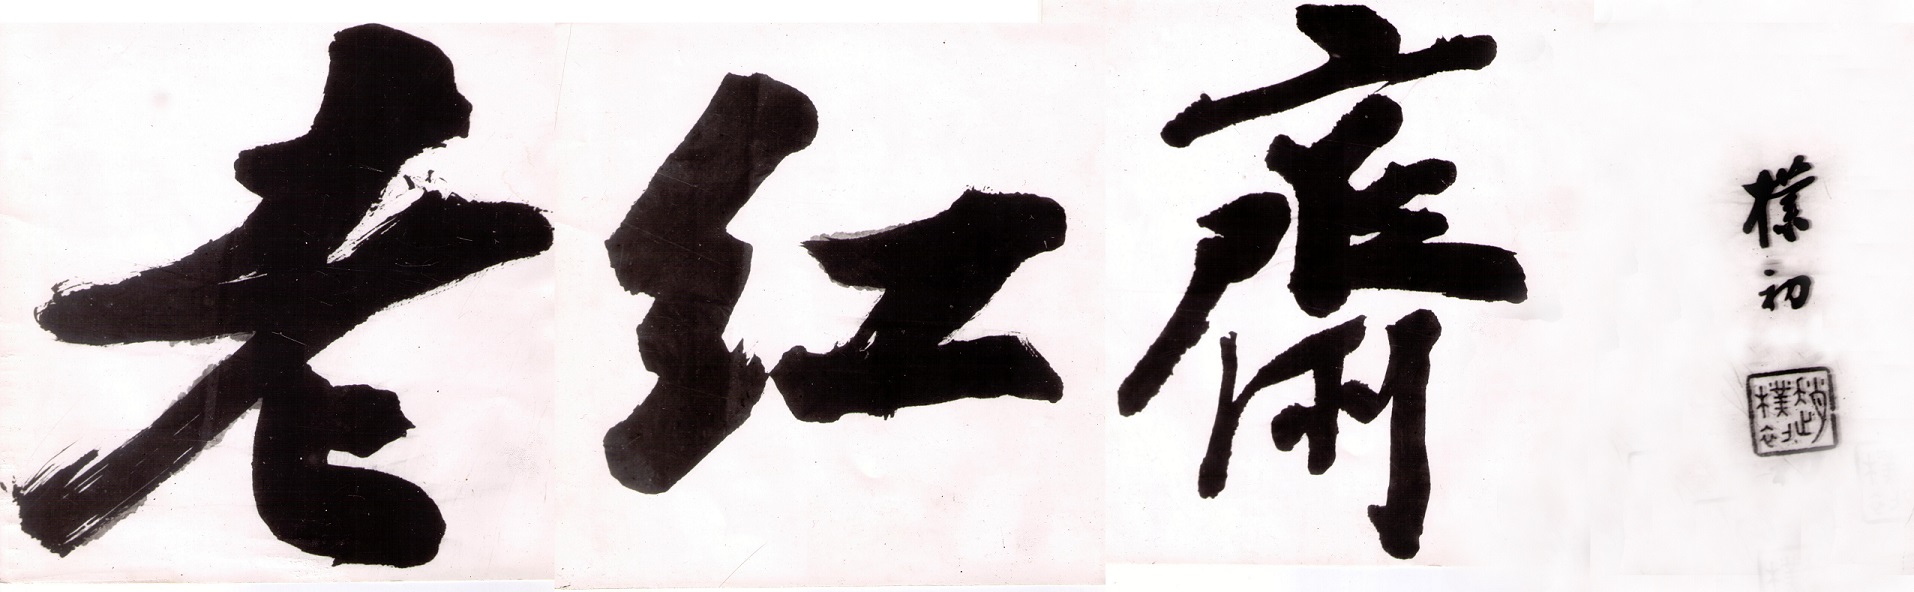 老红齋
樸初
趙樸初